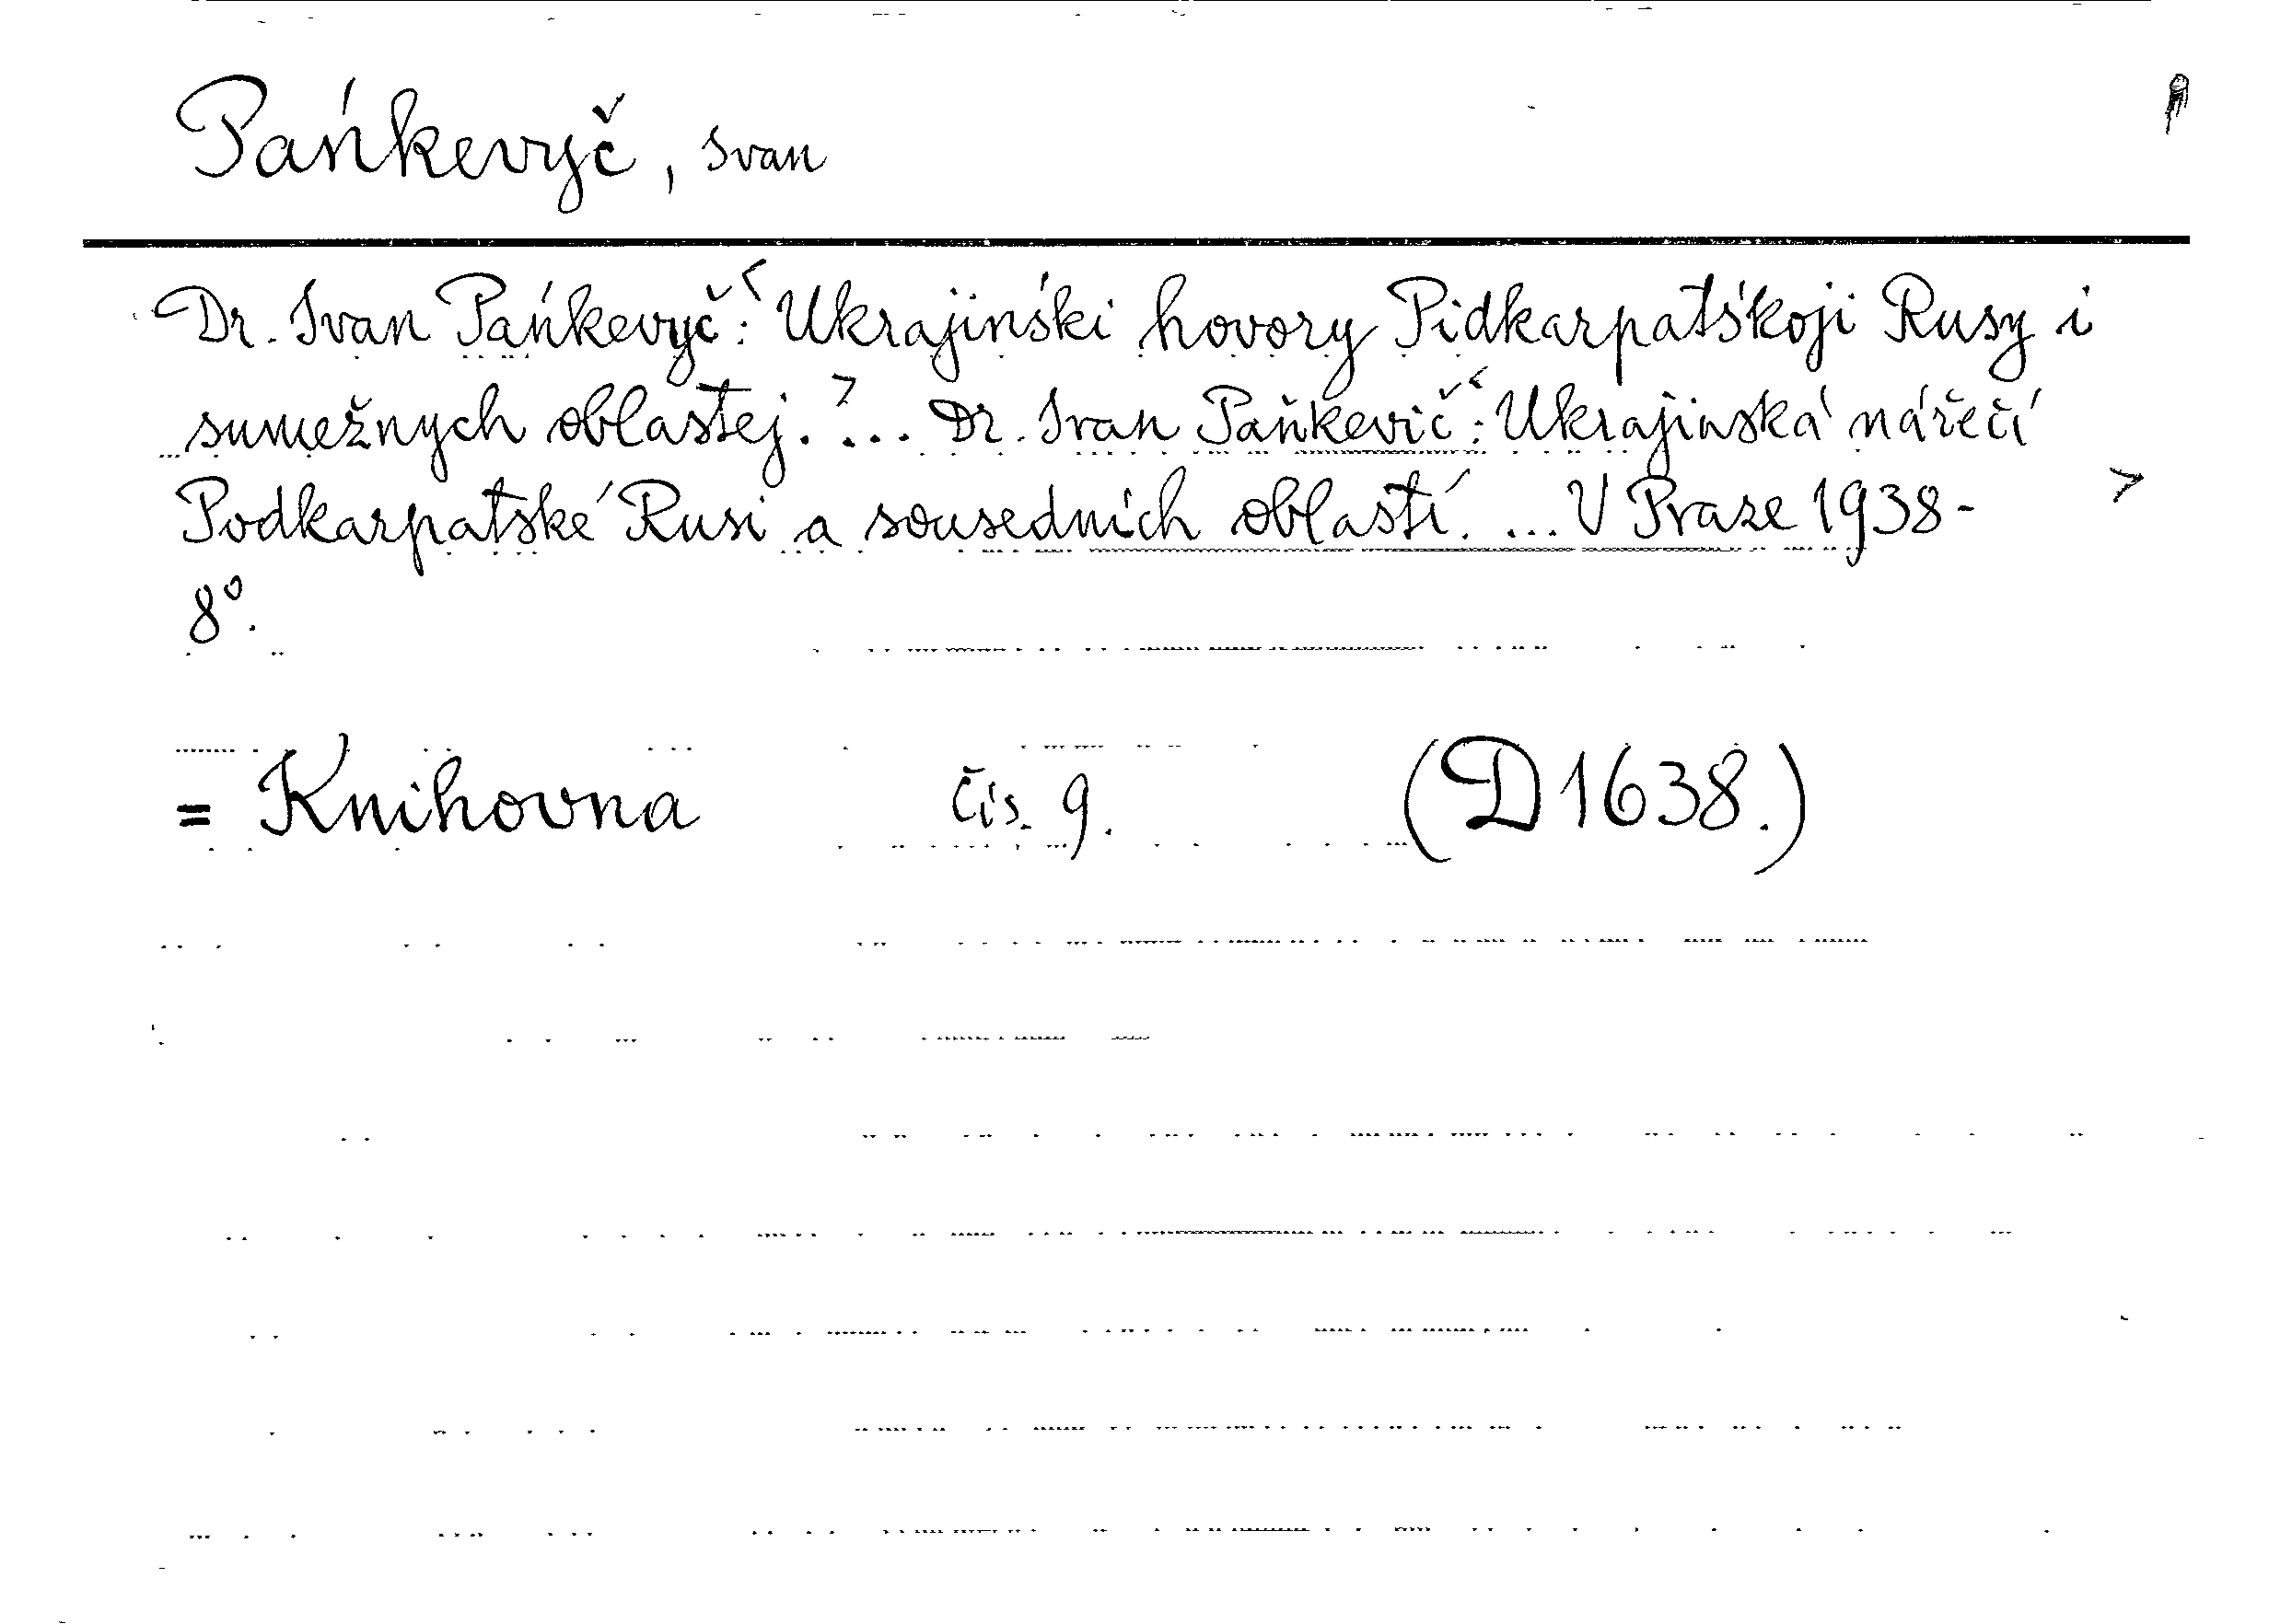 Pańkevyč, Ivan
Dr. Ivan Pańkevyč: <Ukrajinśki hovory Pidkarpatśkoji Rusy i
sumežnych oblastej.> ... Dr. Ivan Paňkevič: <Ukrajinská nářečí
Podkarpatské Rusi a sousedních oblastí. ... V Praze 1938- >
8°.
= Knihovna čís. 9. (D 1638.)